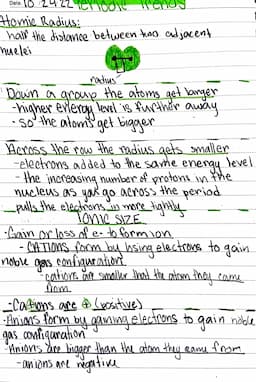 Date: 10.24.22 Periodic Trends
Atomic Radius:
half the distance between two adjacent
nuclei
radius
Down a group the atoms get larger
-higher energy level is further away
-so the atoms get bigger
Across the row the radius gets smaller
-electrons added to the same energy level
-the increasing number of protons in the
nucleus as you go across the period
pulls the electrons in more tightly
IONIC SIZE
-Gain or loss of e- to form ion
-CATIONS form by losing electrons to gain
noble gas configuration
-cations are smaller that the atom they came
from
-Cations are + (positive)
-Anions form by gaining electrons to gain noble
gas configuration
-Anions are bigger than the atom they came from
-anions are negative